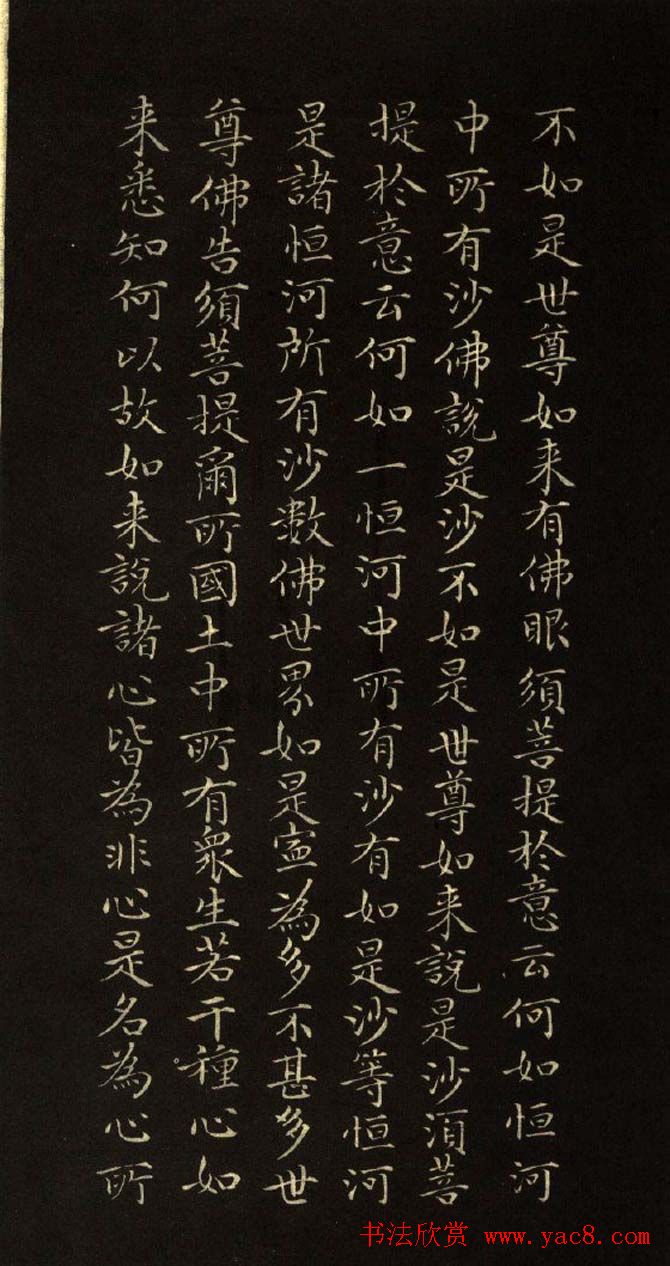 不如是世尊如来有佛眼須菩提於意云何如恒河
中所有沙佛說是沙不如是世尊如来說是沙須菩
提於意云何如一恒河中所有沙有如是沙等恒河
是諸恒河所有沙數佛世界如是寍為多不甚多世
尊佛告須菩提爾所國土中所有衆生若干種心如
来悉知何以故如来說諸心皆為非心是名為心所
书法欣赏 www.yac8.com